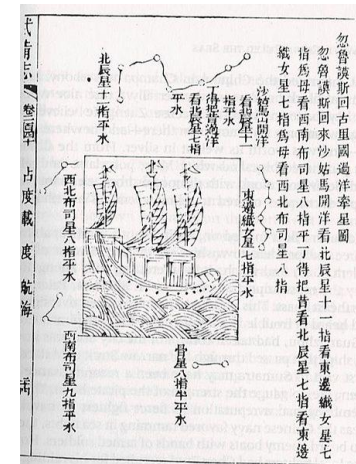 忽魯謨斯回古里國過洋牽星圖
忽魯謨斯回來沙姑馬開洋看北辰星十一指看東邊織女星七
指為母看西南布司星八指平丁得把昔看北辰星七指看東邊
織女星七指為母看西北布司星八指
沙姑馬開洋
看北辰星十一
指平水
丁得把昔過洋
看北辰星七指
平水
北辰星十一指平水
東邊織女星七指平水
西北布司星八指平水
骨星八指半平水
西南布司星九指平水
武備志 卷二百四十 占度載 度 航海